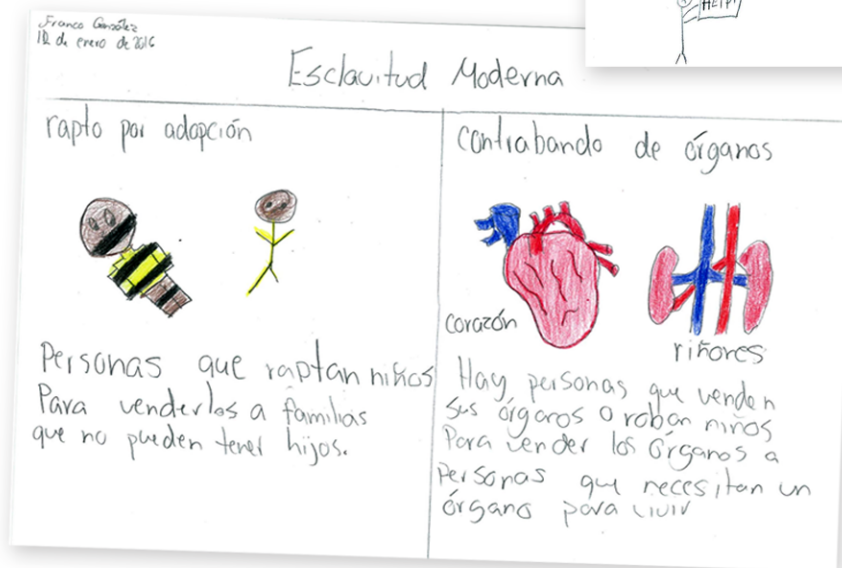 Franco González
12 de enero de 2016
HELP!
Esclavitud Moderna
rapto por adopción
Personas que raptan niños
Para venderlos a familias
que no pueden tener hijos.
contrabando de órganos
corazón
riñores
Hay personas que venden
sus órganos o roban niños
Para vender los órganos a
personas que necesitan un
órgano para vivir